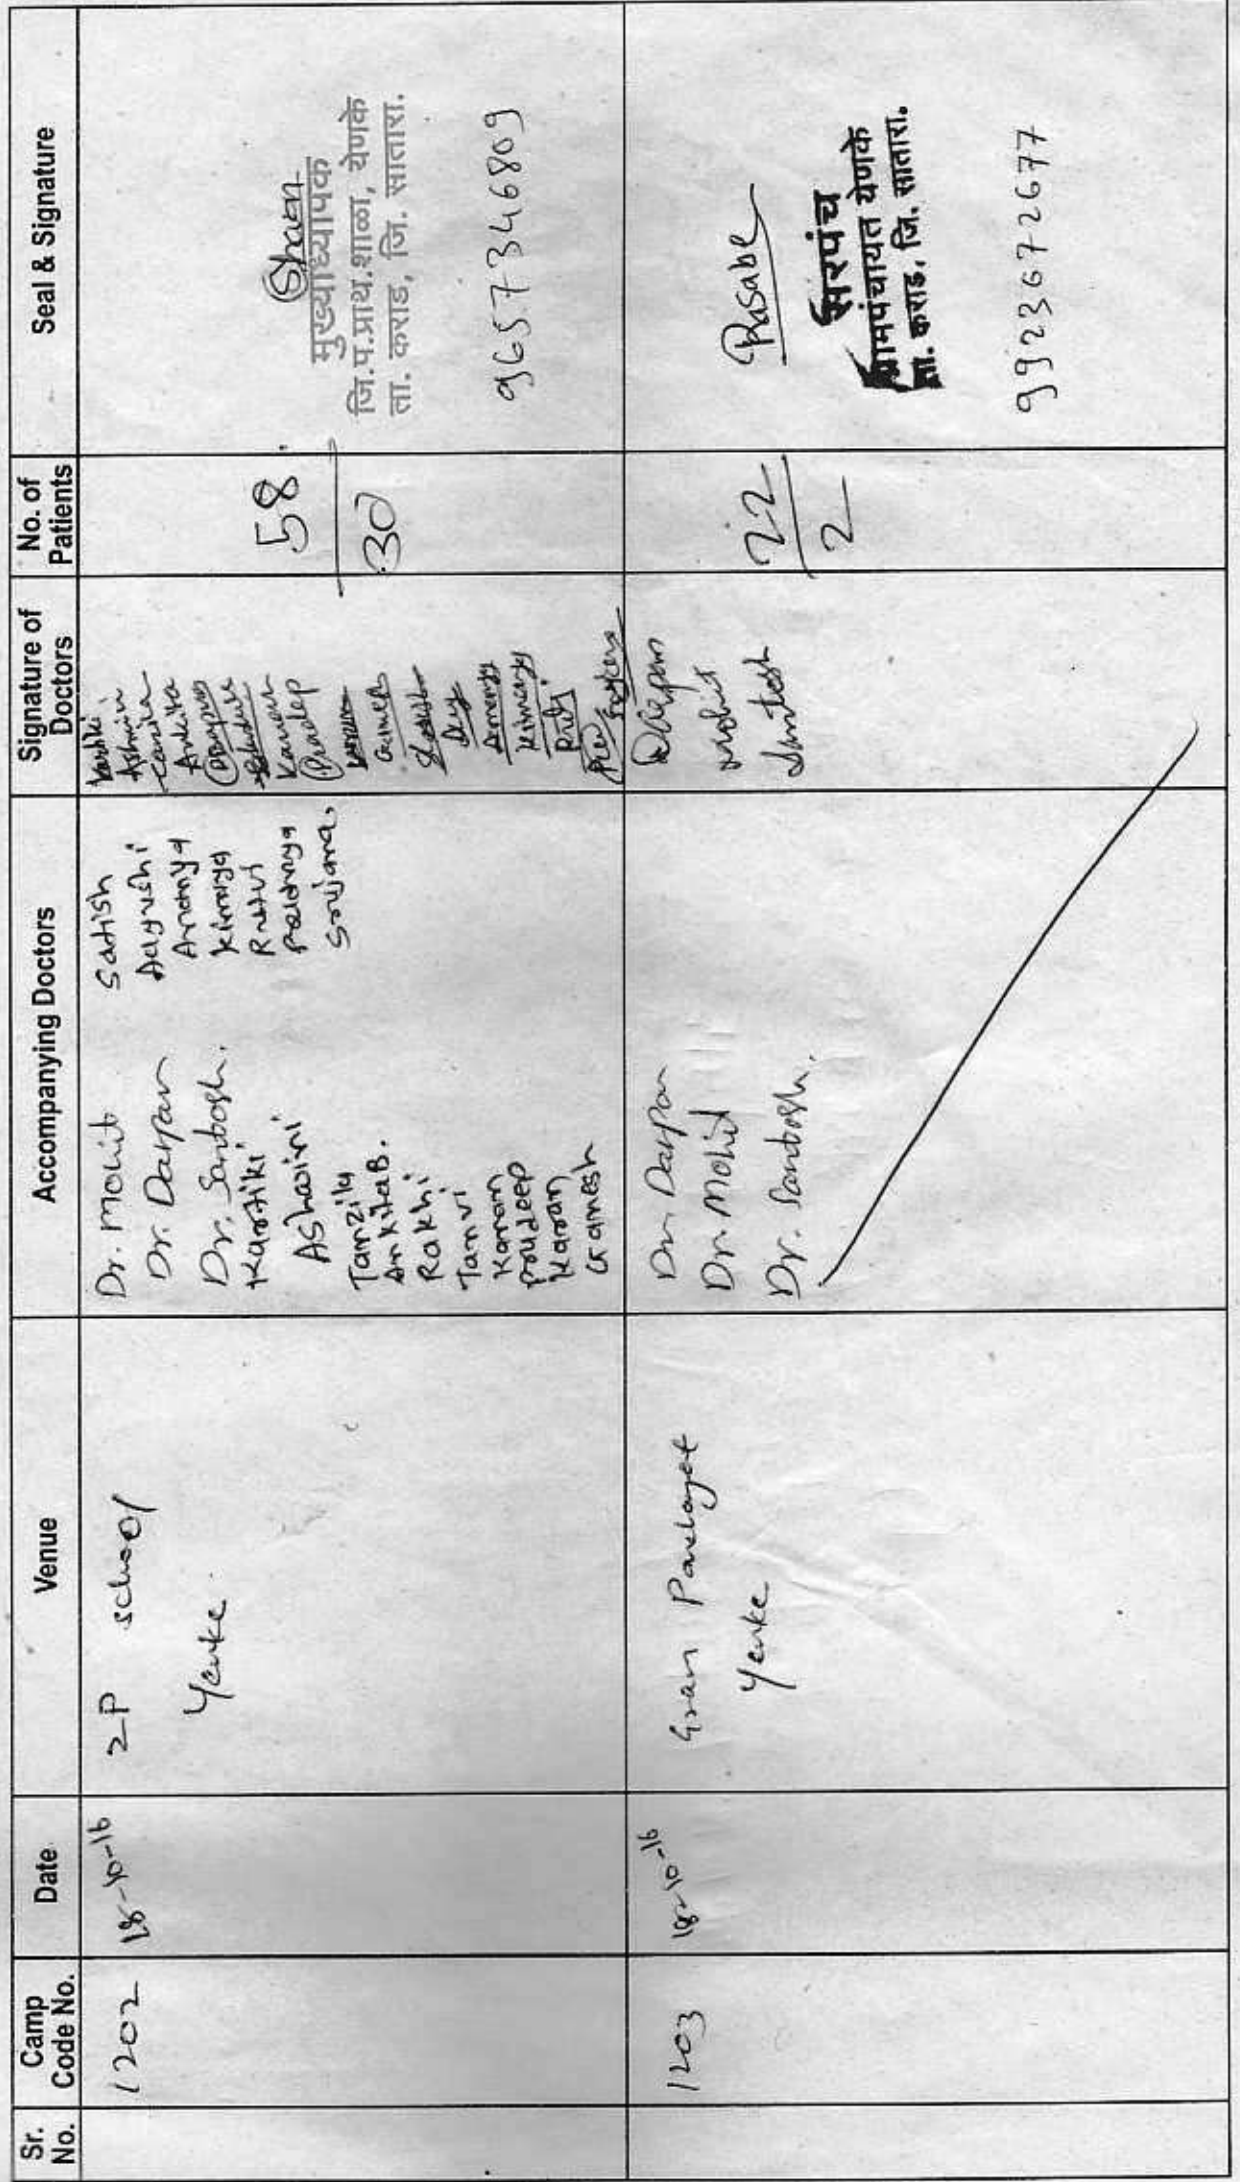 Sr. No.
Camp Code No.
Date
Venue
Accompanying Doctors
Signature of Doctors
No. of Patients
Seal & Signature
1202
18-10-16
ZP school
Yenke
Dr. Mohit
Dr. Darpan
Dr. Santosh.
Kartiki
Ashwini
Tanzila
Ankita B.
Rakhi
Tanvi
Karan
Pradeep
Karan
Ganesh
Satish
Aayushi
Ananya
Kimaya
Rutuj
Pradnya
Srujana,
Kartiki
Ashwini
Ankita
Pradeep
Ganesh
Ananya
Kimaya
Rutuj
58
30
मुख्याध्यापक
जि.प.प्राथ.शाळा, येणके
ता. कराड, जि. सातारा.
9657346809
1203
18-10-16
Gram Panchayat
Yenke
Dr. Darpan
Dr. Mohit
Dr. Santosh.
Darpan
Mohit
Santosh
22
2
सरपंच
ग्रामपंचायत येणके
ता. कराड, जि. सातारा.
9923672677